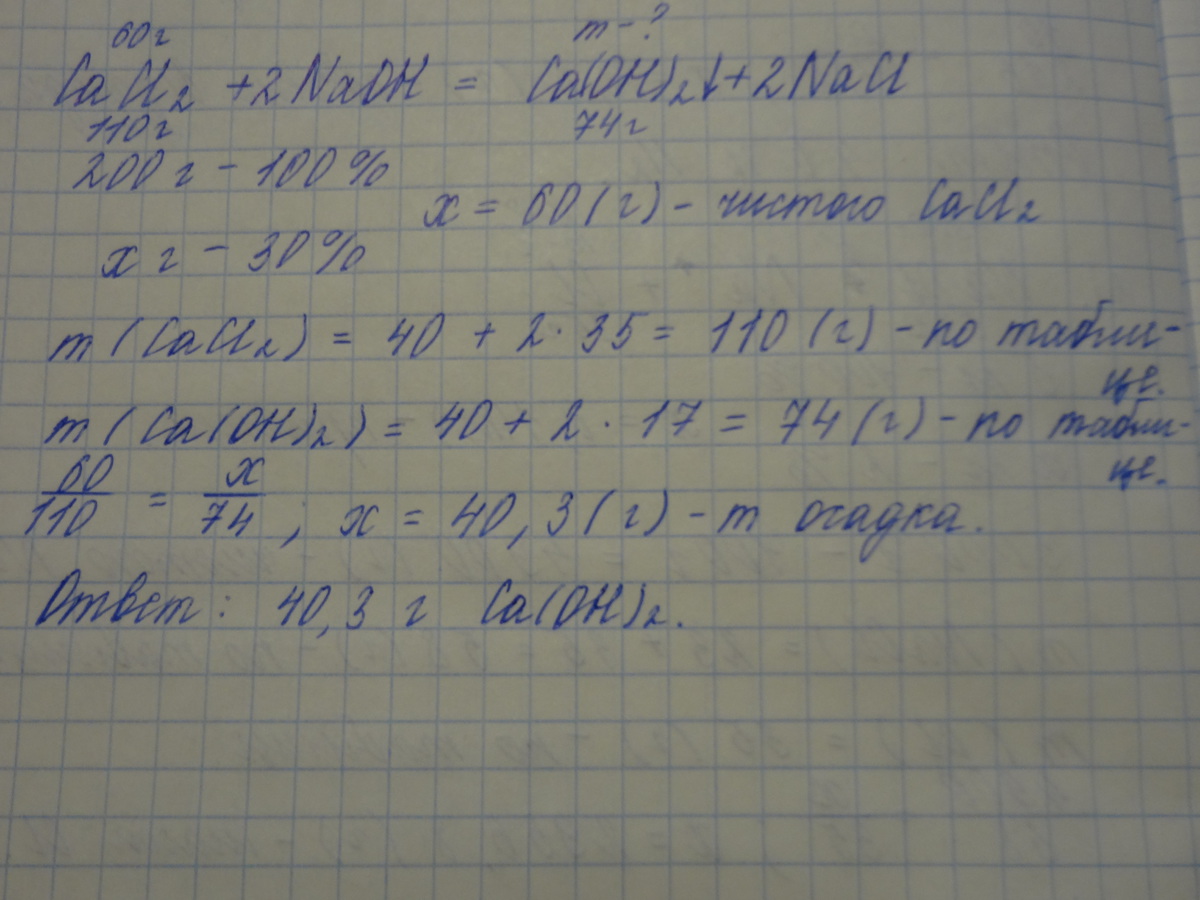 60г m - ?
CaCl₂ + 2NaOH = Ca(OH)₂↓ + 2NaCl
110г 74г
200 г - 100%
x = 60 (г) - чистого CaCl₂
x г - 30%
m (CaCl₂) = 40 + 2 · 35 = 110 (г) - по табли-
це.
m (Ca(OH)₂) = 40 + 2 · 17 = 74 (г) - по табли-
це.
60/110 = x/74 ; x = 40,3 (г) - m осадка.
Ответ: 40,3 г Ca(OH)₂.